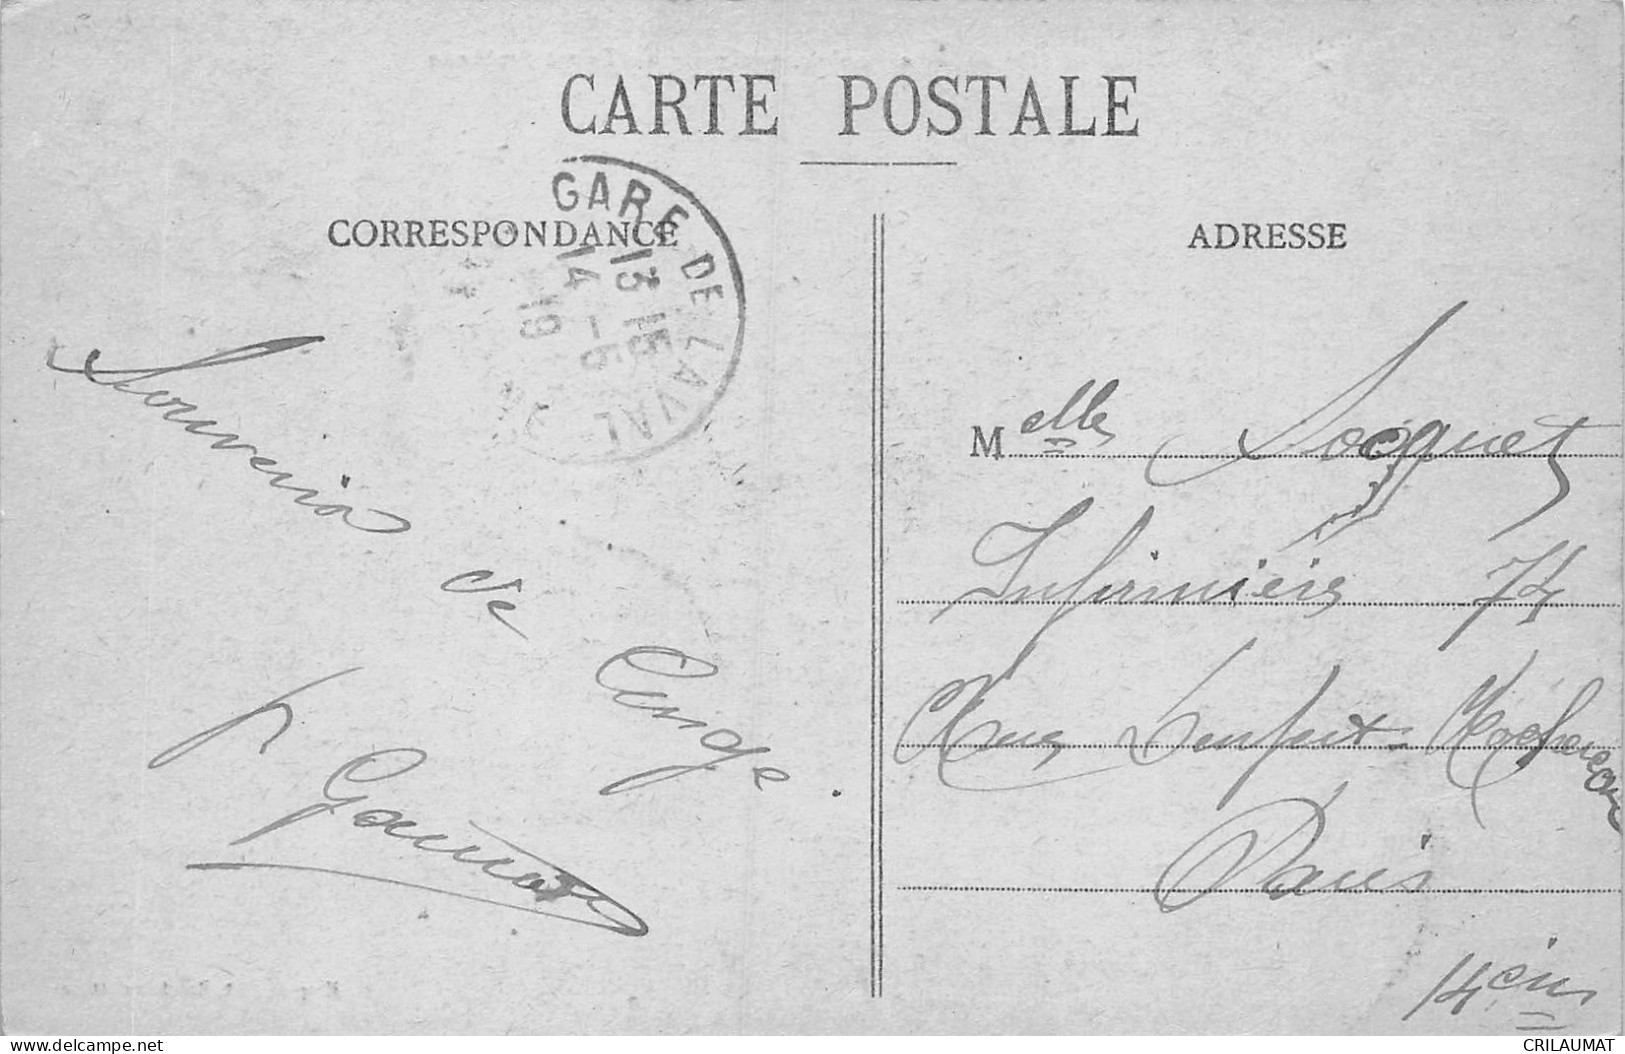 CARTE POSTALE
CORRESPONDANCE
ADRESSE
GARE DE LAVAL
13 15
14 -5
19
Souvenir
de
P
Melle Socquet
Infirmière 74
Rue Denfert-Rochereau
Paris
14ein
delcampe.net
CRILAUMAT